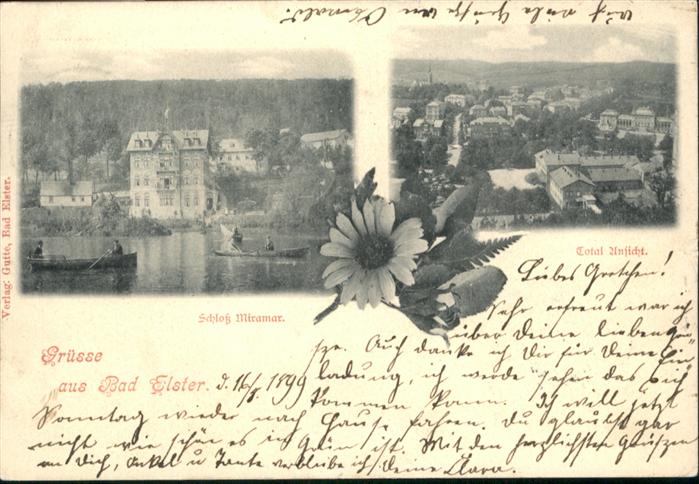 Viele Grüße von
Verlag: Gutte, Bad Elster.
Schloß Miramar.
Total Ansicht.
Grüsse
aus Bad Elster. d. 16/5. 1899
Liebes Gretchen!
Sehr erfreut war ich
über Deine lieben Grü-
sze. Auch danke ich Dir für Deine Ein
ladung, ich werde sehen das ich
kommen kann. Ich will jetzt
Sonntag wieder nach Hause fahren. Du glaubst gar
nicht wie schön es im Grün ist. Mit den herzlichsten Grüszen
an Dich, Onkel u Tante verbleibe ich deine Clara.